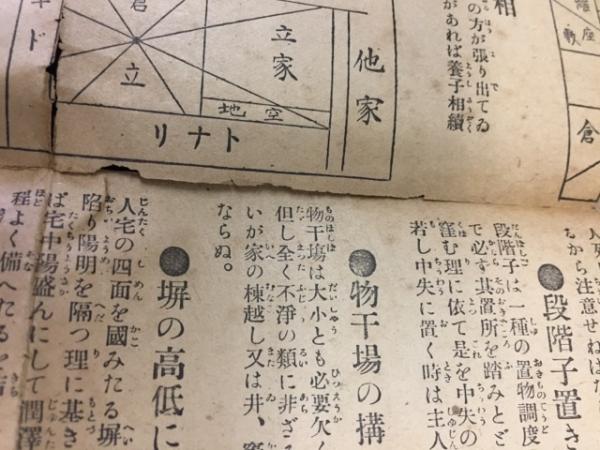 座
敷
倉
相
の方が張り出てゐ
があれば養子相續
他家
立家
空地
トナリ
立
ド
から注意せねば
●段階子置き
段階子は一種の置物調度
で必ず其置所を踏みと
窪む理に依て是を中央の
若し中央に置く時は主人
●物干場の搆
物干塲は大小とも必要欠く
但し全く不淨の類に非ざ
いが家の棟越し又は井、
ならぬ。
●塀の高低に
人宅の四面を國みたる塀
陷り陽明を隔つ理に基き
ば宅中陽盛んにして潤澤
程よく備へたるを吉